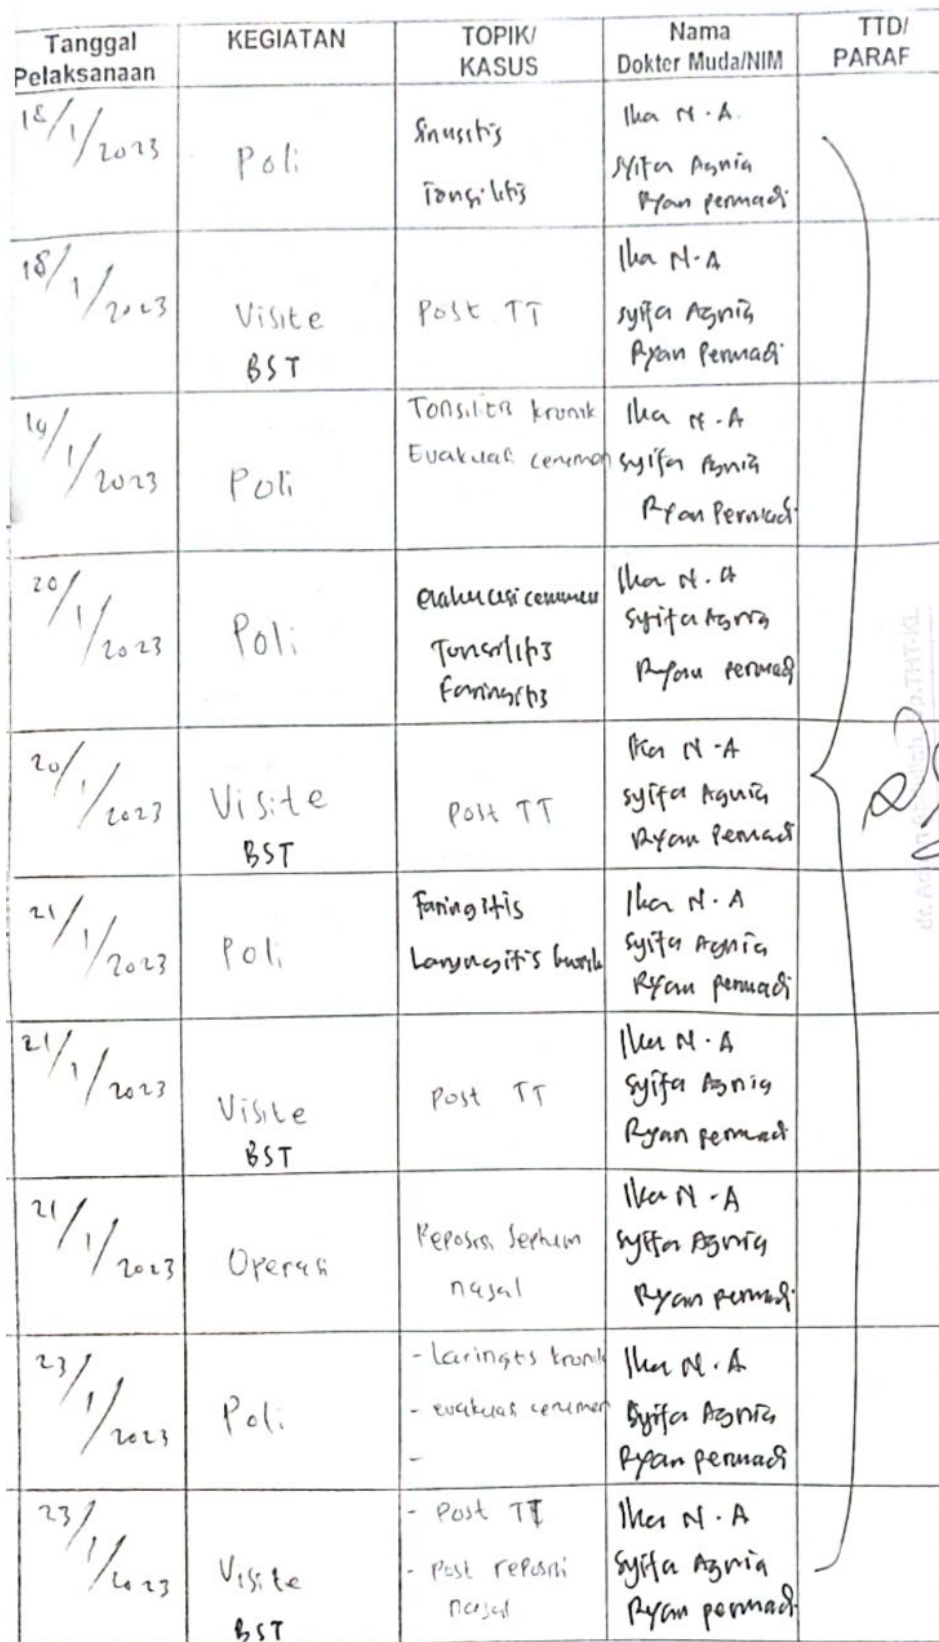 Tanggal Pelaksanaan KEGIATAN TOPIK/ KASUS Nama Dokter Muda/NIM TTD/ PARAF
18/1/2023 Poli Sinusitis Ika N.A.
Tonsilitis Syifa Agnia
Ryan Permadi
18/1/2023 Visite Post TT Ika N.A
BST Syifa Agnia
Ryan Permadi
19/1/2023 Poli Tonsilitis kronik Ika N.A
Evakuasi cerumen Syifa Agnia
Ryan Permadi
20/1/2023 Poli evakuasi cerumen Ika N.A
Tonsilitis Syifa Agnia
Faringitis Ryan Permadi
20/1/2023 Visite Post TT Ika N.A
BST Syifa Agnia
Ryan Permadi
21/1/2023 Poli Faringitis Ika N.A
Laryngitis kronik Syifa Agnia
Ryan Permadi
21/1/2023 Visite Post TT Ika N.A
BST Syifa Agnia
Ryan Permadi
21/1/2023 Operasi Reposisi Septum Ika N.A
nasal Syifa Agnia
Ryan Permadi
23/1/2023 Poli - Laringitis kronik Ika N.A
- evakuasi cerumen Syifa Agnia
- Ryan Permadi
23/1/2023 Visite - Post TT Ika N.A
BST - Post reposisi Syifa Agnia
nasal Ryan Permadi